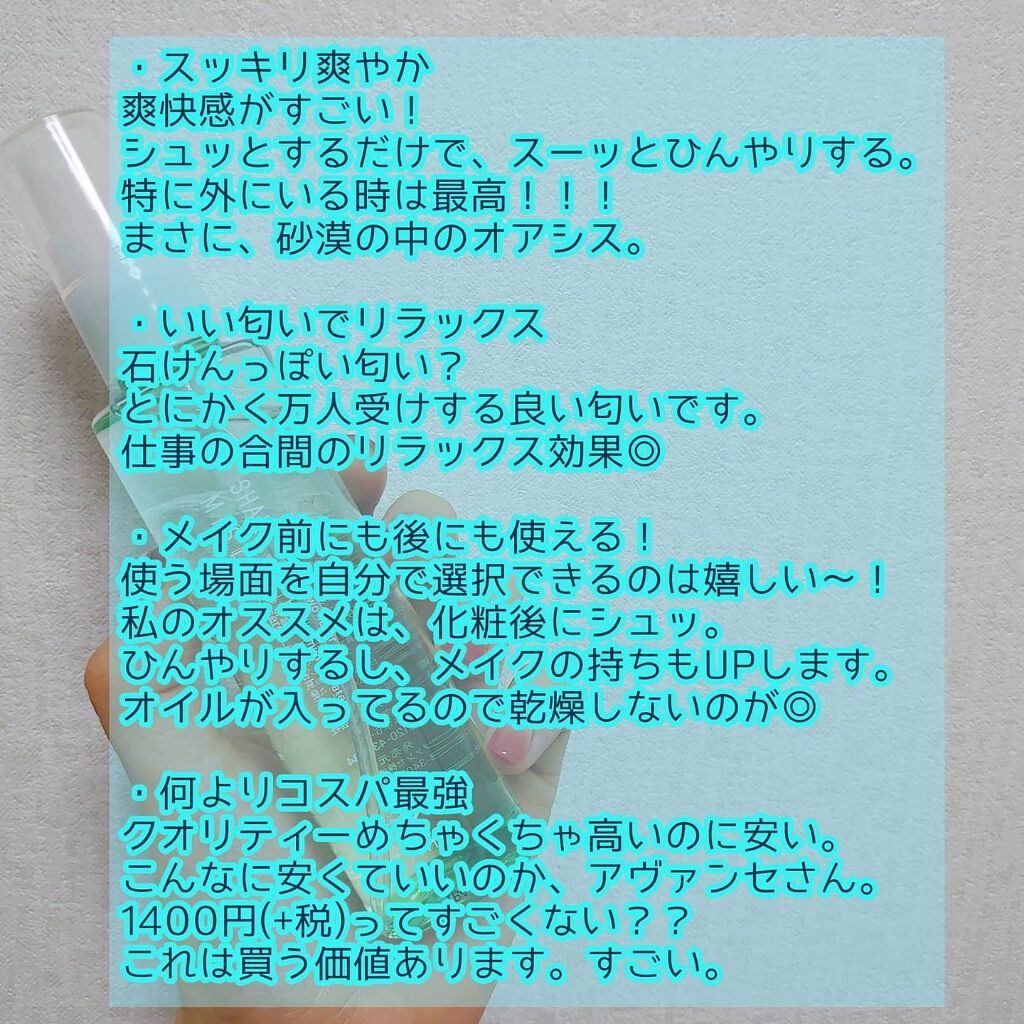 ・スッキリ爽やか
爽快感がすごい！
シュッとするだけで、スーッとひんやりする。
特に外にいる時は最高！！！
まさに、砂漠の中のオアシス。
・いい匂いでリラックス
石けんっぽい匂い？
とにかく万人受けする良い匂いです。
仕事の合間のリラックス効果◎
・メイク前にも後にも使える！
使う場面を自分で選択できるのは嬉しい〜！
私のオススメは、化粧後にシュッ。
ひんやりするし、メイクの持ちもUPします。
オイルが入ってるので乾燥しないのが◎
・何よりコスパ最強
クオリティーめちゃくちゃ高いのに安い。
こんなに安くていいのか、アヴァンセさん。
1400円(+税)ってすごくない？？
これは買う価値あります。すごい。